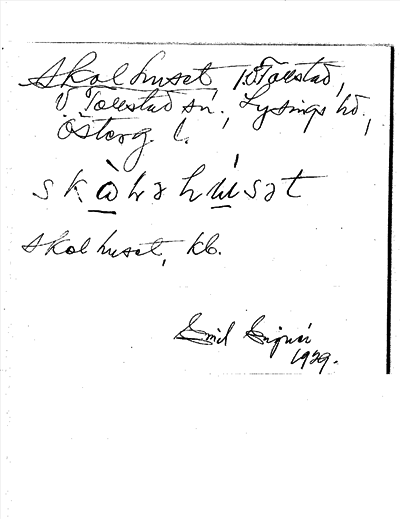 Skolhuset, V Tollstad,
V Tollstad sn., Lysings hd.,
Österg l.
skὼləhúsət
Skolhuset, kb.
Emil
1929.